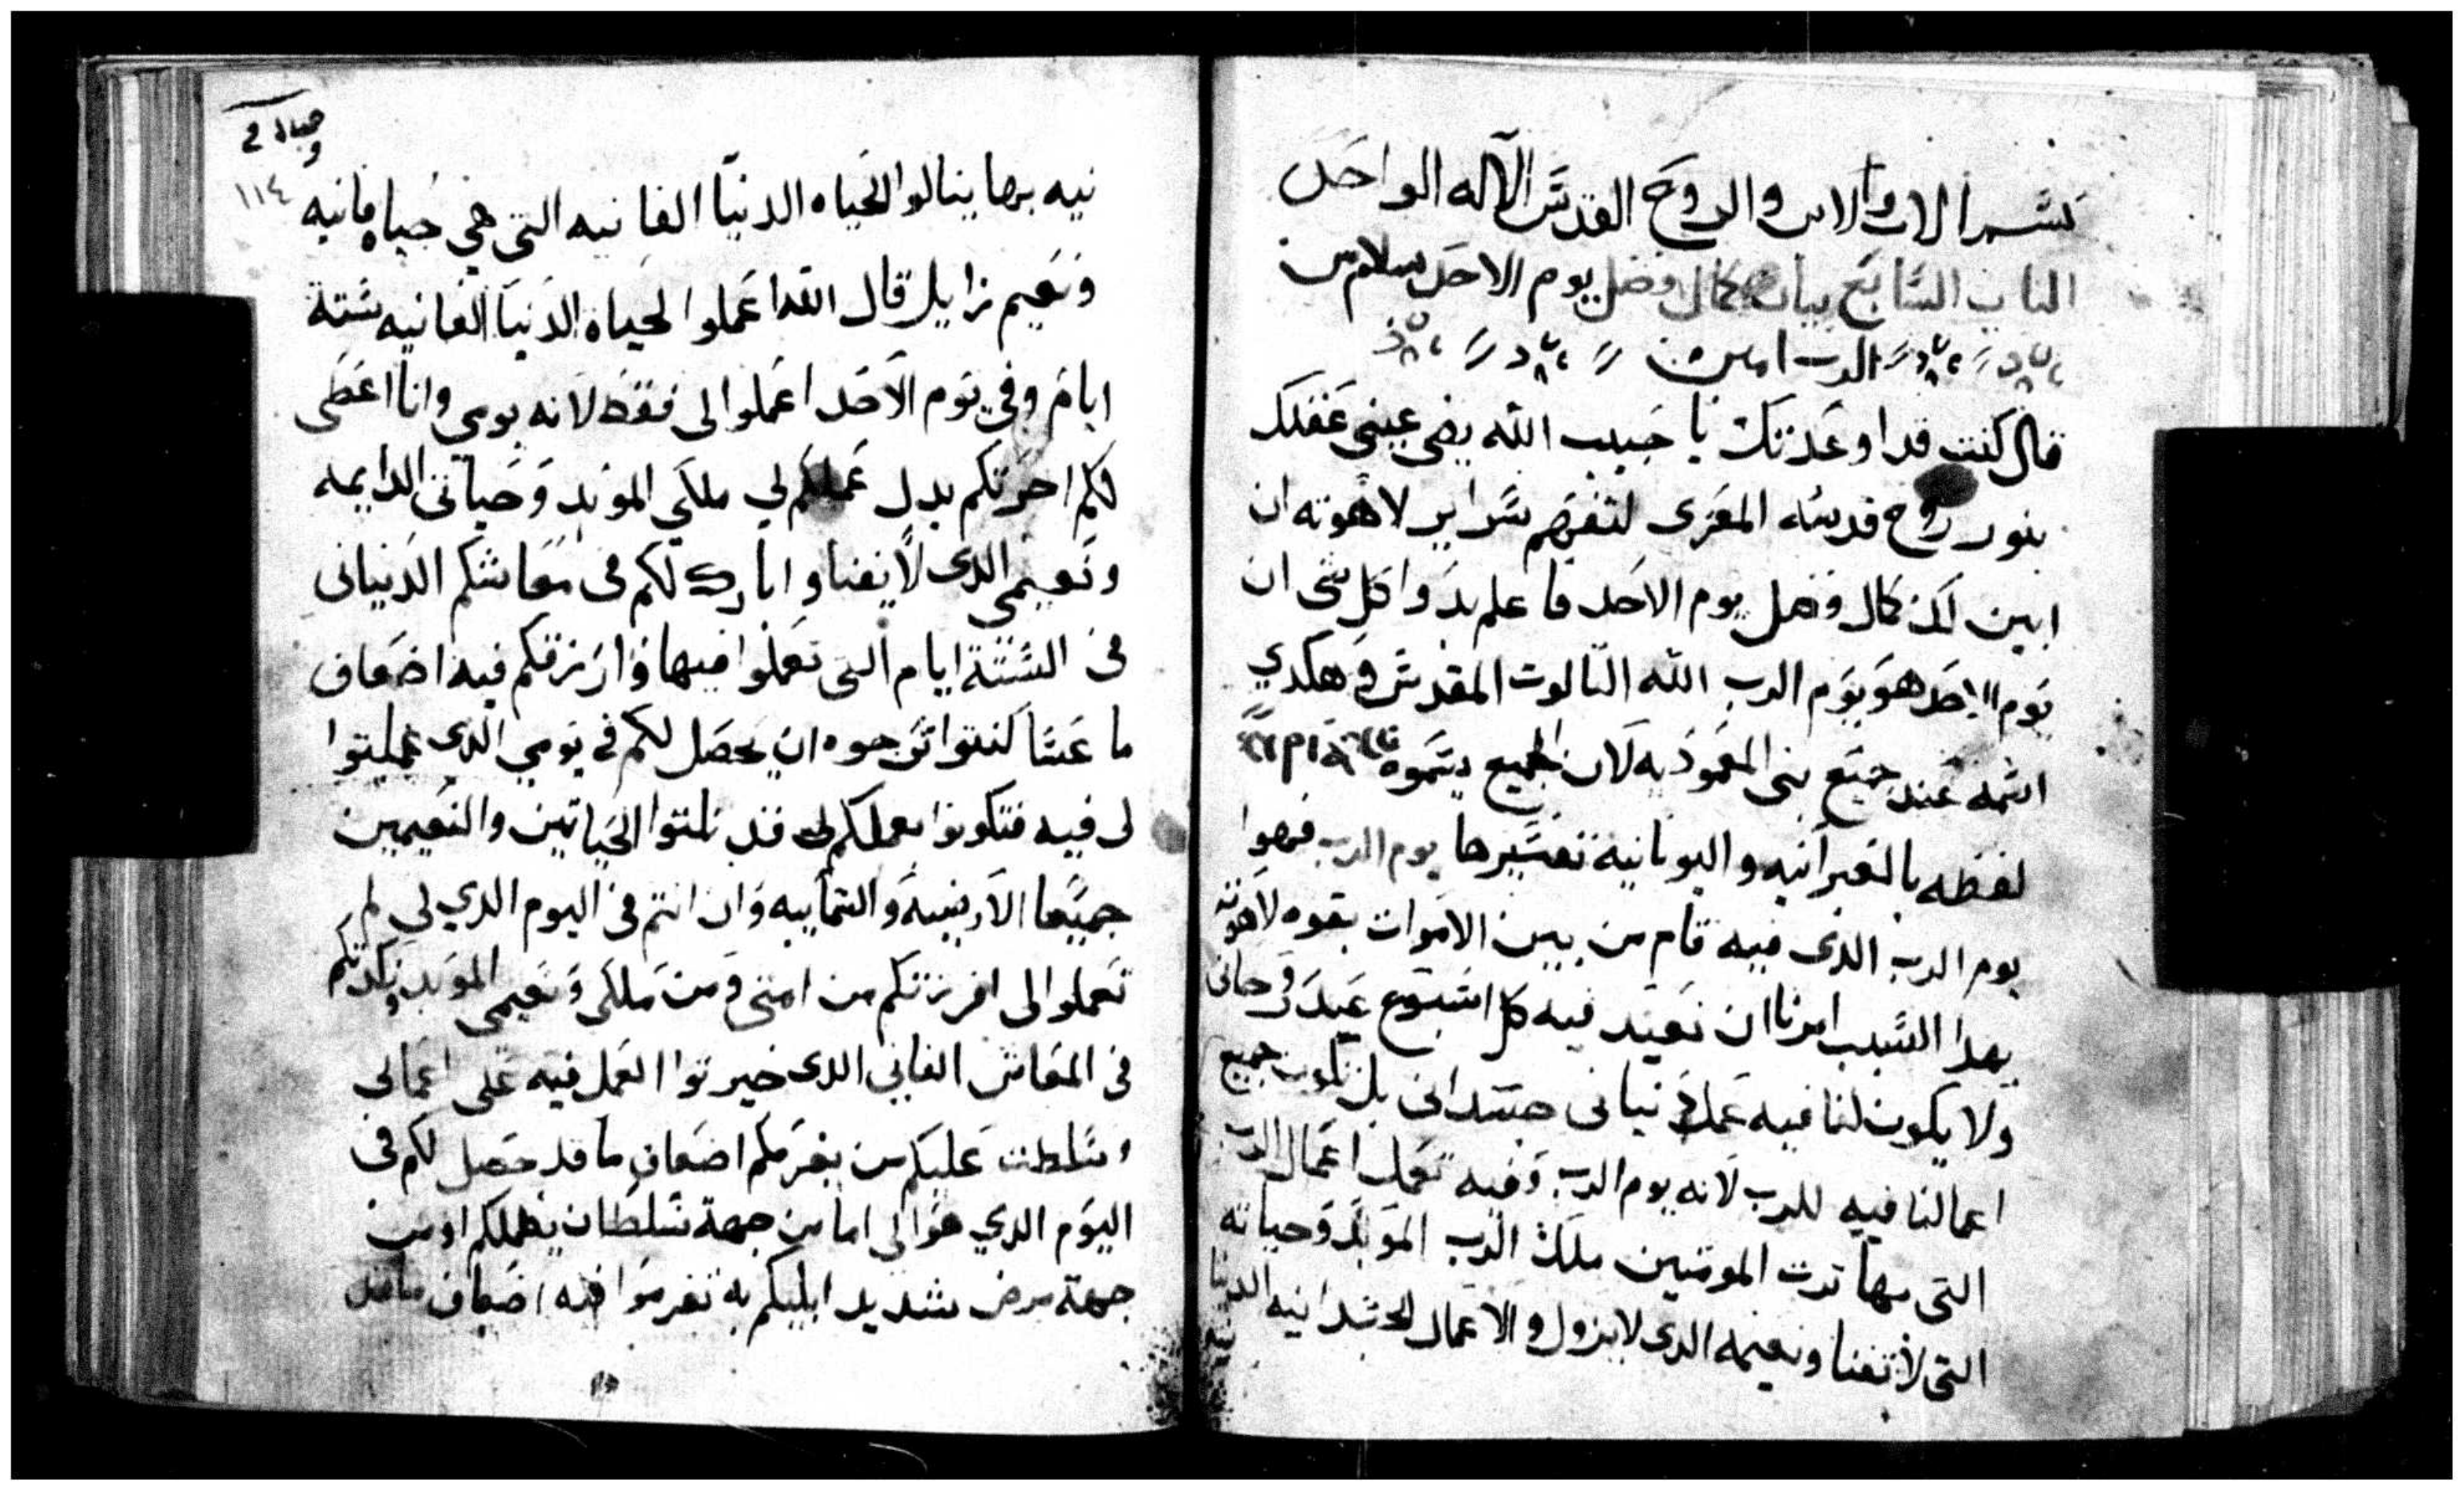 بسم الاب والابن والروح القدس الآله الواحد
الباب السابع بيان كمال وفضل يوم الاحد بسلام من
الرب امين
قال كنت قد اوعدتك يا حبيب الله يضي عيني عقلك
بنور روح قدسه المعزى لتفهم سراير لاهوته ان
ابين لك كمال وفضل يوم الاحد فاعلم بدوا كل شى ان
يوم الاحد هو يوم الرب الله التالوت المقدس وهكدي
اسمه عند جميع بنى المعموديه لان الجميع يسموه
لفظه بالعبرانيه واليونانية تفسيرها يوم الرب فهوا
يوم الرب الدى فيه قام من بين الاموات بقوه لاهوته
بهدا السبب امرنا ان نعيد فيه كل اسبوع عيد روحانى
ولا يكون لنا فيه عمل دنيانى جسدانى بل تكون جميع
اعمالنا فيه للرب لانه يوم الرب وفيه نعمل اعمال الرب
التى بها ترت المومنين ملك الرب الموبد وحياته
التى لا تفنا ونعيمه الدى لا يزول والاعمال الجسدانيه الدنيا
نيه
وحياه في
١١٤
نيه بها ينالوا الحياه الدنيا الفانيه التى هي حياه فانيه
ونعيم زايل قال الله اعملوا لحياه الدنيا الفانيه ستة
ايام وفي يوم الاحد اعملوا لى فقط لانه يومي وانا اعطى
لكم اخرتكم بدل عملكم لي ملكي الموبد وحياتى الدايمه
ونعيمي الدى لا يفنا وابارك لكم فى معاشكم الدنيانى
فى الستة ايام التى تعملوا فيها وارزقكم فيه اضعاف
ما عسا كنتوا ترجوه ان يحصل لكم فى يومي الدي عملتوا
لى فيه فتكونوا بعملكم لى قد نلتوا الحياتين والنعيمين
جميعا الارضيه والسمايه وان انتم فى اليوم الدي لي لم
تعملوا لى افرزتكم من امتى ومن ملكى ونعيمى الموبد ونكدتكم
فى المعاش الفاني الدى خيرتوا العمل فيه على اعمالى
وسلطت عليكم من يغرمكم اضعاف ما قد حصل لكم فى
اليوم الدي هو لى اما من جهة سلطان يظلمكم او من
جهة مرض شديد ابليكم به تغرموا فيه اضعاف ما